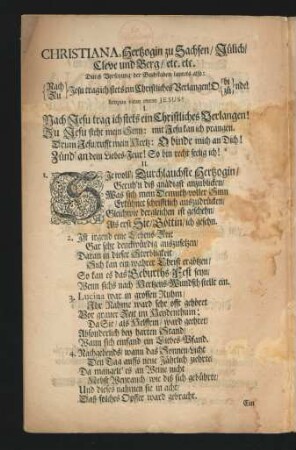 CHRISTIANA, Hertzogin zu Sachsen / Jülich/
Cleve und Berg / etc. etc.
Durch Versetzung der Buchstaben lautets also:
{Nach / Zu} Jesu trag ich stets ein Christliches Verlangen! O bi nde!
JESUS!
I.
Nach Jesu trag ich stets ein Christliches Verlangen!
Zu Jesu steht mein Sinn: mit Jesu kan ich prangen.
Drum Jesu rufft mein Hertz: O binde mich an Dich!
Zünd' an dein Liebes-Feur! So bin recht seelig ich!
II.
1. Sie woll' Durchlauchste Hertzogin/
Geruh'n diß gnädigst anzublicken/
Was sich mein Demuth-voller Sinn
Erkühnet schrifftlich auszudrücken
Gleichwie dergleichen ist geschehn/
Als erst Sie/ Göttin/ ich gesehn.
2. Ist irgend eine Lebens-Zeit
Gar sehr denckwürdig auszusetzen
Daran in dieser Sterblichkeit
Sich kan ein wahrer Christ ergötzen/
So kan es das Geburths-Fest seyn/
Wenn sichs nach Hertzens-Wundsch stellt ein.
3. Lucina war in grossen Ruhm/
Ihr Nahme ward sehr offt geehret
Vor grauer Zeit im Heydenthum:
Da Sie/ als Helfferin/ ward geehret/
Absonderlich bey harten Stand/
Wann sich einfand ein Liebes-Pfand.
4. Nachgehends/ wann das Sonnen-Licht
Den Tag auffs neue Jährlich gebracht
Da mangelt' es an Weine nicht
Nebst Weyrauch/ wie diß sich gebührte/
Und dieses nahmen sie in acht/
Daß solches Opffer ward gebracht.
Ein